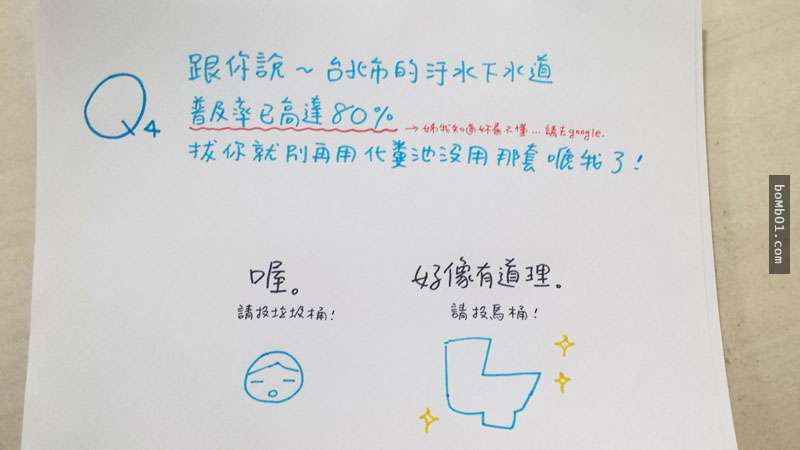 Q4
跟你說~台北市的汙水下水道
普及率已高達80%
→姊我知道妳看不懂...請去google.
拔你就別再用化糞池沒用那套唬我了!
喔。
請投垃圾桶!
好像有道理。
請投馬桶!
boMb01.com